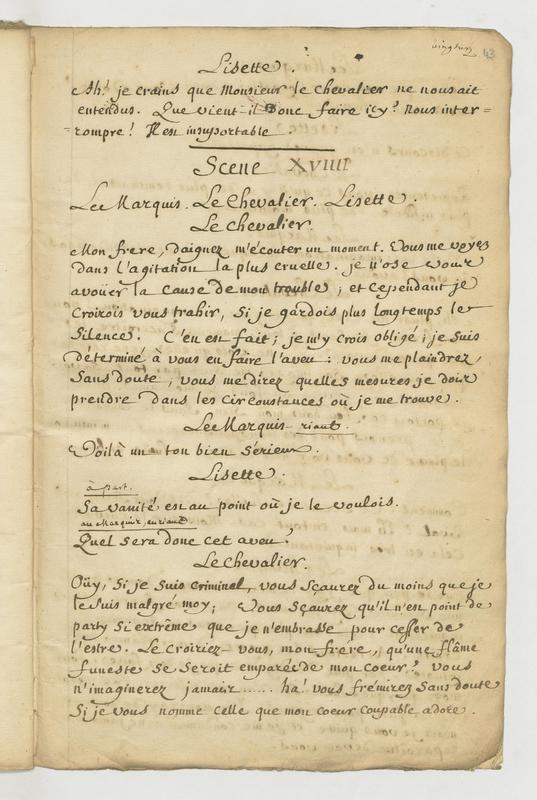 43
Lisette.
Ah! je crains que Monsieur le chevalier ne nous ait
entendus. Que vient-il donc faire icy? Nous inter=
=rompre! Il est insuportable.
Scene XVIIII
Le Marquis. Le Chevalier. Lisette.
Le Chevalier.
Mon frere, daignez m'écouter un moment. Vous me voyez
dans l'agitation la plus cruelle. je n'ose vous
avoüer la cause de mon trouble; et cependant je
Croirois vous trahir, Si je gardois plus longtemps le
Silence. C'en est fait; je m'y Crois obligé; je suis
déterminé à vous en faire l'aveu: vous me plaindrez,
Sans doute, vous me direz quelles mesures je dois
prendre dans les circonstances où je me trouve.
Le Marquis riant.
Voilà un ton bien Serieux.
Lisette.
à part.
Sa vanité est au point où je le voulois.
au Marquis, en riant
Quel Sera donc cet aveu?
Le Chevalier.
Oüy, Si je Suis criminel, vous Sçaurez du moins que je
le Suis malgré moy; Vous Sçaurez qu'il n'est point de
party Si extrême que je n'embrasse pour cesser de
l'estre. Le Croiriez-vous, mon frere, qu'une flâme
funeste Se Seroit emparée de mon Coeur? vous
n'imaginerez jamais...... ha! vous frémirez Sans doute
Si je vous nomme celle que mon coeur Coupable adore.